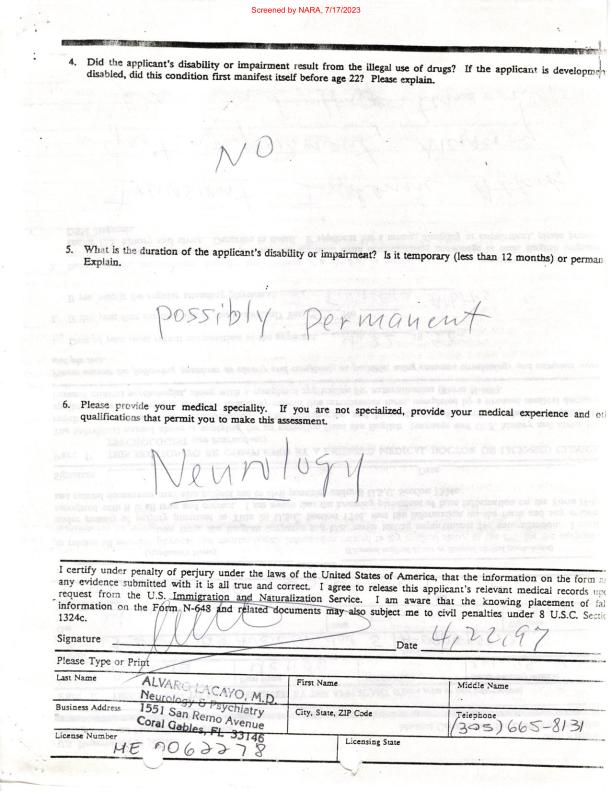 Screened by NARA, 7/17/2023
4. Did the applicant's disability or impairment result from the illegal use of drugs? If the applicant is developmen
disabled, did this condition first manifest itself before age 22? Please explain.
NO
5. What is the duration of the applicant's disability or impairment? Is it temporary (less than 12 months) or perman
Explain.
possibly permanent
6. Please provide your medical speciality. If you are not specialized, provide your medical experience and ot
qualifications that permit you to make this assessment.
Neurology
I certify under penalty of perjury under the laws of the United States of America, that the information on the form a
any evidence submitted with it is all true and correct. I agree to release this applicant's relevant medical records up
request from the U.S. Immigration and Naturalization Service. I am aware that the knowing placement of fal
information on the Form N-648 and related documents may also subject me to civil penalties under 8 U.S.C. Sectio
1324c.
Signature Date 4,22,97
Please Type or Print
Last Name First Name Middle Name
ALVARO LACAYO, M.D.
Neurology & Psychiatry
Business Address City, State, ZIP Code Telephone
1551 San Remo Avenue
Coral Gables, FL 33146
(305) 665-8131
License Number Licensing State
ME 0062278